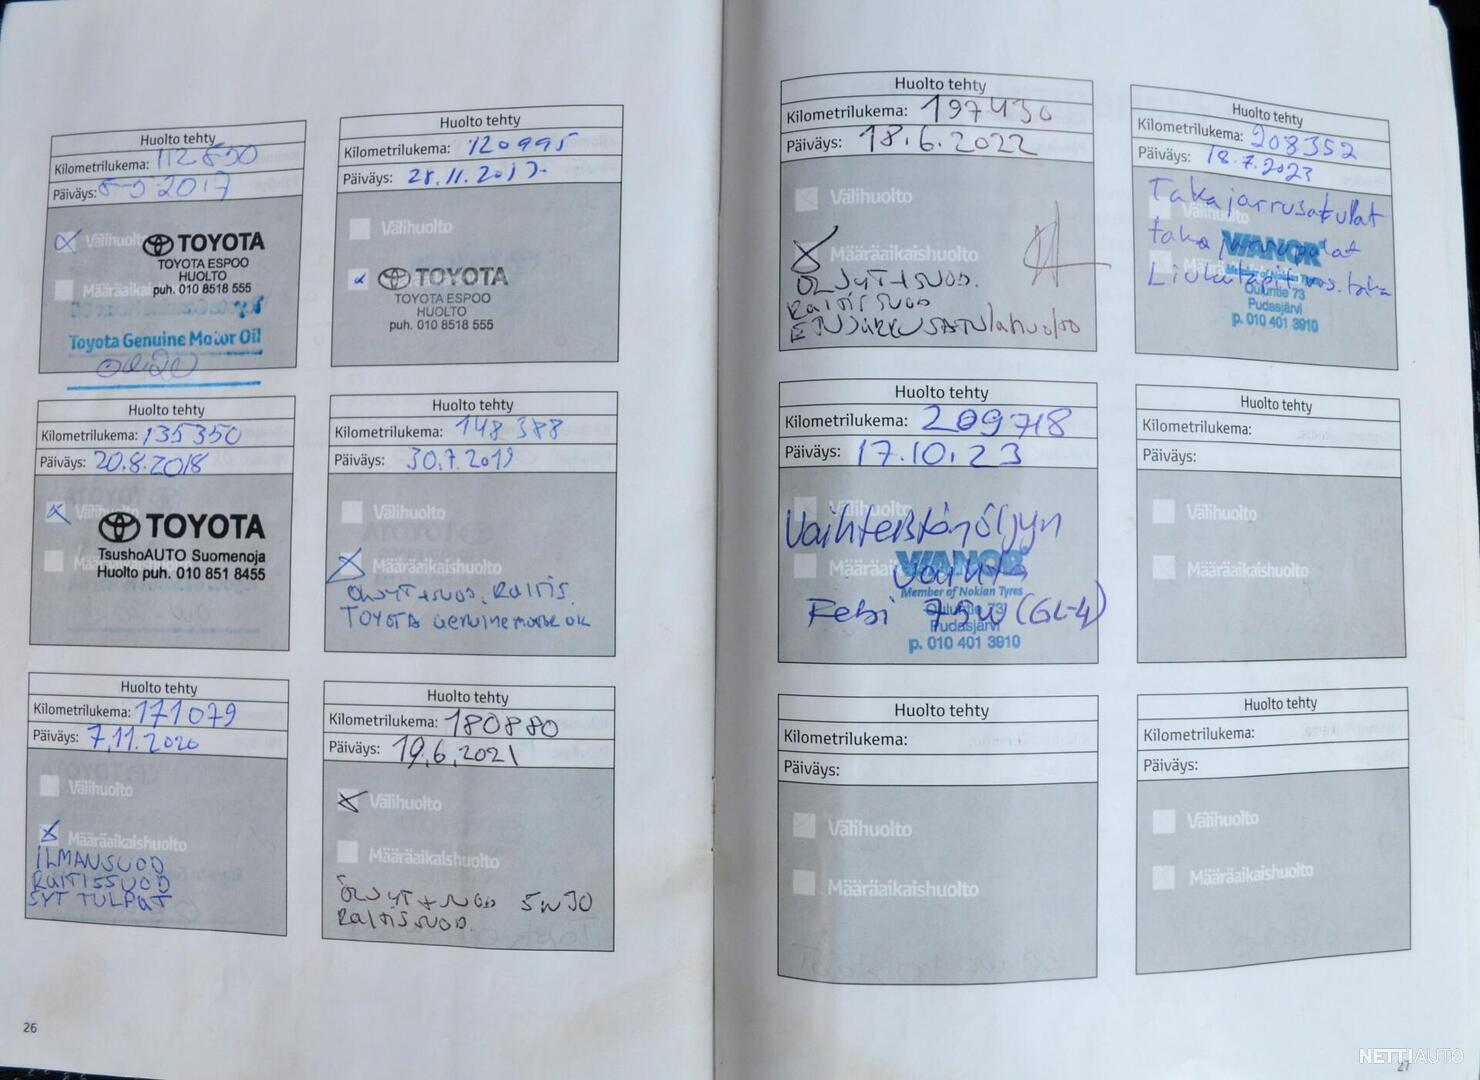 Huolto tehty
Kilometrilukema: 112850
Päiväys: 2017
Välihuolto
Määräaikaishuolto
TOYOTA
TOYOTA ESPOO
HUOLTO
puh. 010 8518 555
Toyota Genuine Motor Oil
0W20
Huolto tehty
Kilometrilukema: 120995
Päiväys: 28.11.2017
Välihuolto
TOYOTA
TOYOTA ESPOO
HUOLTO
puh. 010 8518 555
Huolto tehty
Kilometrilukema: 135350
Päiväys: 20.8.2018
Välihuolto
TOYOTA
Määräaikaishuolto
TsushoAUTO Suomenoja
Huolto puh. 010 851 8455
Huolto tehty
Kilometrilukema: 148388
Päiväys: 30.7.2019
Välihuolto
Määräaikaishuolto
ÖLJYT+SUOD. RAITIS.
TOYOTA Genuine motor oil
Huolto tehty
Kilometrilukema: 171079
Päiväys: 7.11.2020
Välihuolto
Määräaikaishuolto
ILMANSUOD
RAITISSUOD
SYT TULPAT
Huolto tehty
Kilometrilukema: 180880
Päiväys: 19.6.2021
Välihuolto
Määräaikaishuolto
ÖLJYT+SUOD 5W30
RAITISSUOD.
26
Huolto tehty
Kilometrilukema: 197430
Päiväys: 18.6.2022
Välihuolto
Määräaikaishuolto
ÖLJYT+SUOD.
RAITISSUOD
ETUJARRUSATULAhuolto
Huolto tehty
Kilometrilukema: 208352
Päiväys: 18.7.2023
Takajarrusatulat
Välihuolto
taka jarrupalat
VIANOR
Liukutapit taka
Member of Nokian Tyres
Ouluntie 73
Pudasjärvi
p. 010 401 3910
Huolto tehty
Kilometrilukema: 209718
Päiväys: 17.10.23
Välihuolto
Vaihteistoöljyn
Määräaikaishuolto
VIANOR
vaihto
Member of Nokian Tyres
Febi 75W (GL-4)
Ouluntie 73
Pudasjärvi
p. 010 401 3910
Huolto tehty
Kilometrilukema:
Päiväys:
Välihuolto
Määräaikaishuolto
Huolto tehty
Kilometrilukema:
Päiväys:
Välihuolto
Määräaikaishuolto
Huolto tehty
Kilometrilukema:
Päiväys:
Välihuolto
Määräaikaishuolto
27
NETTIAUTO